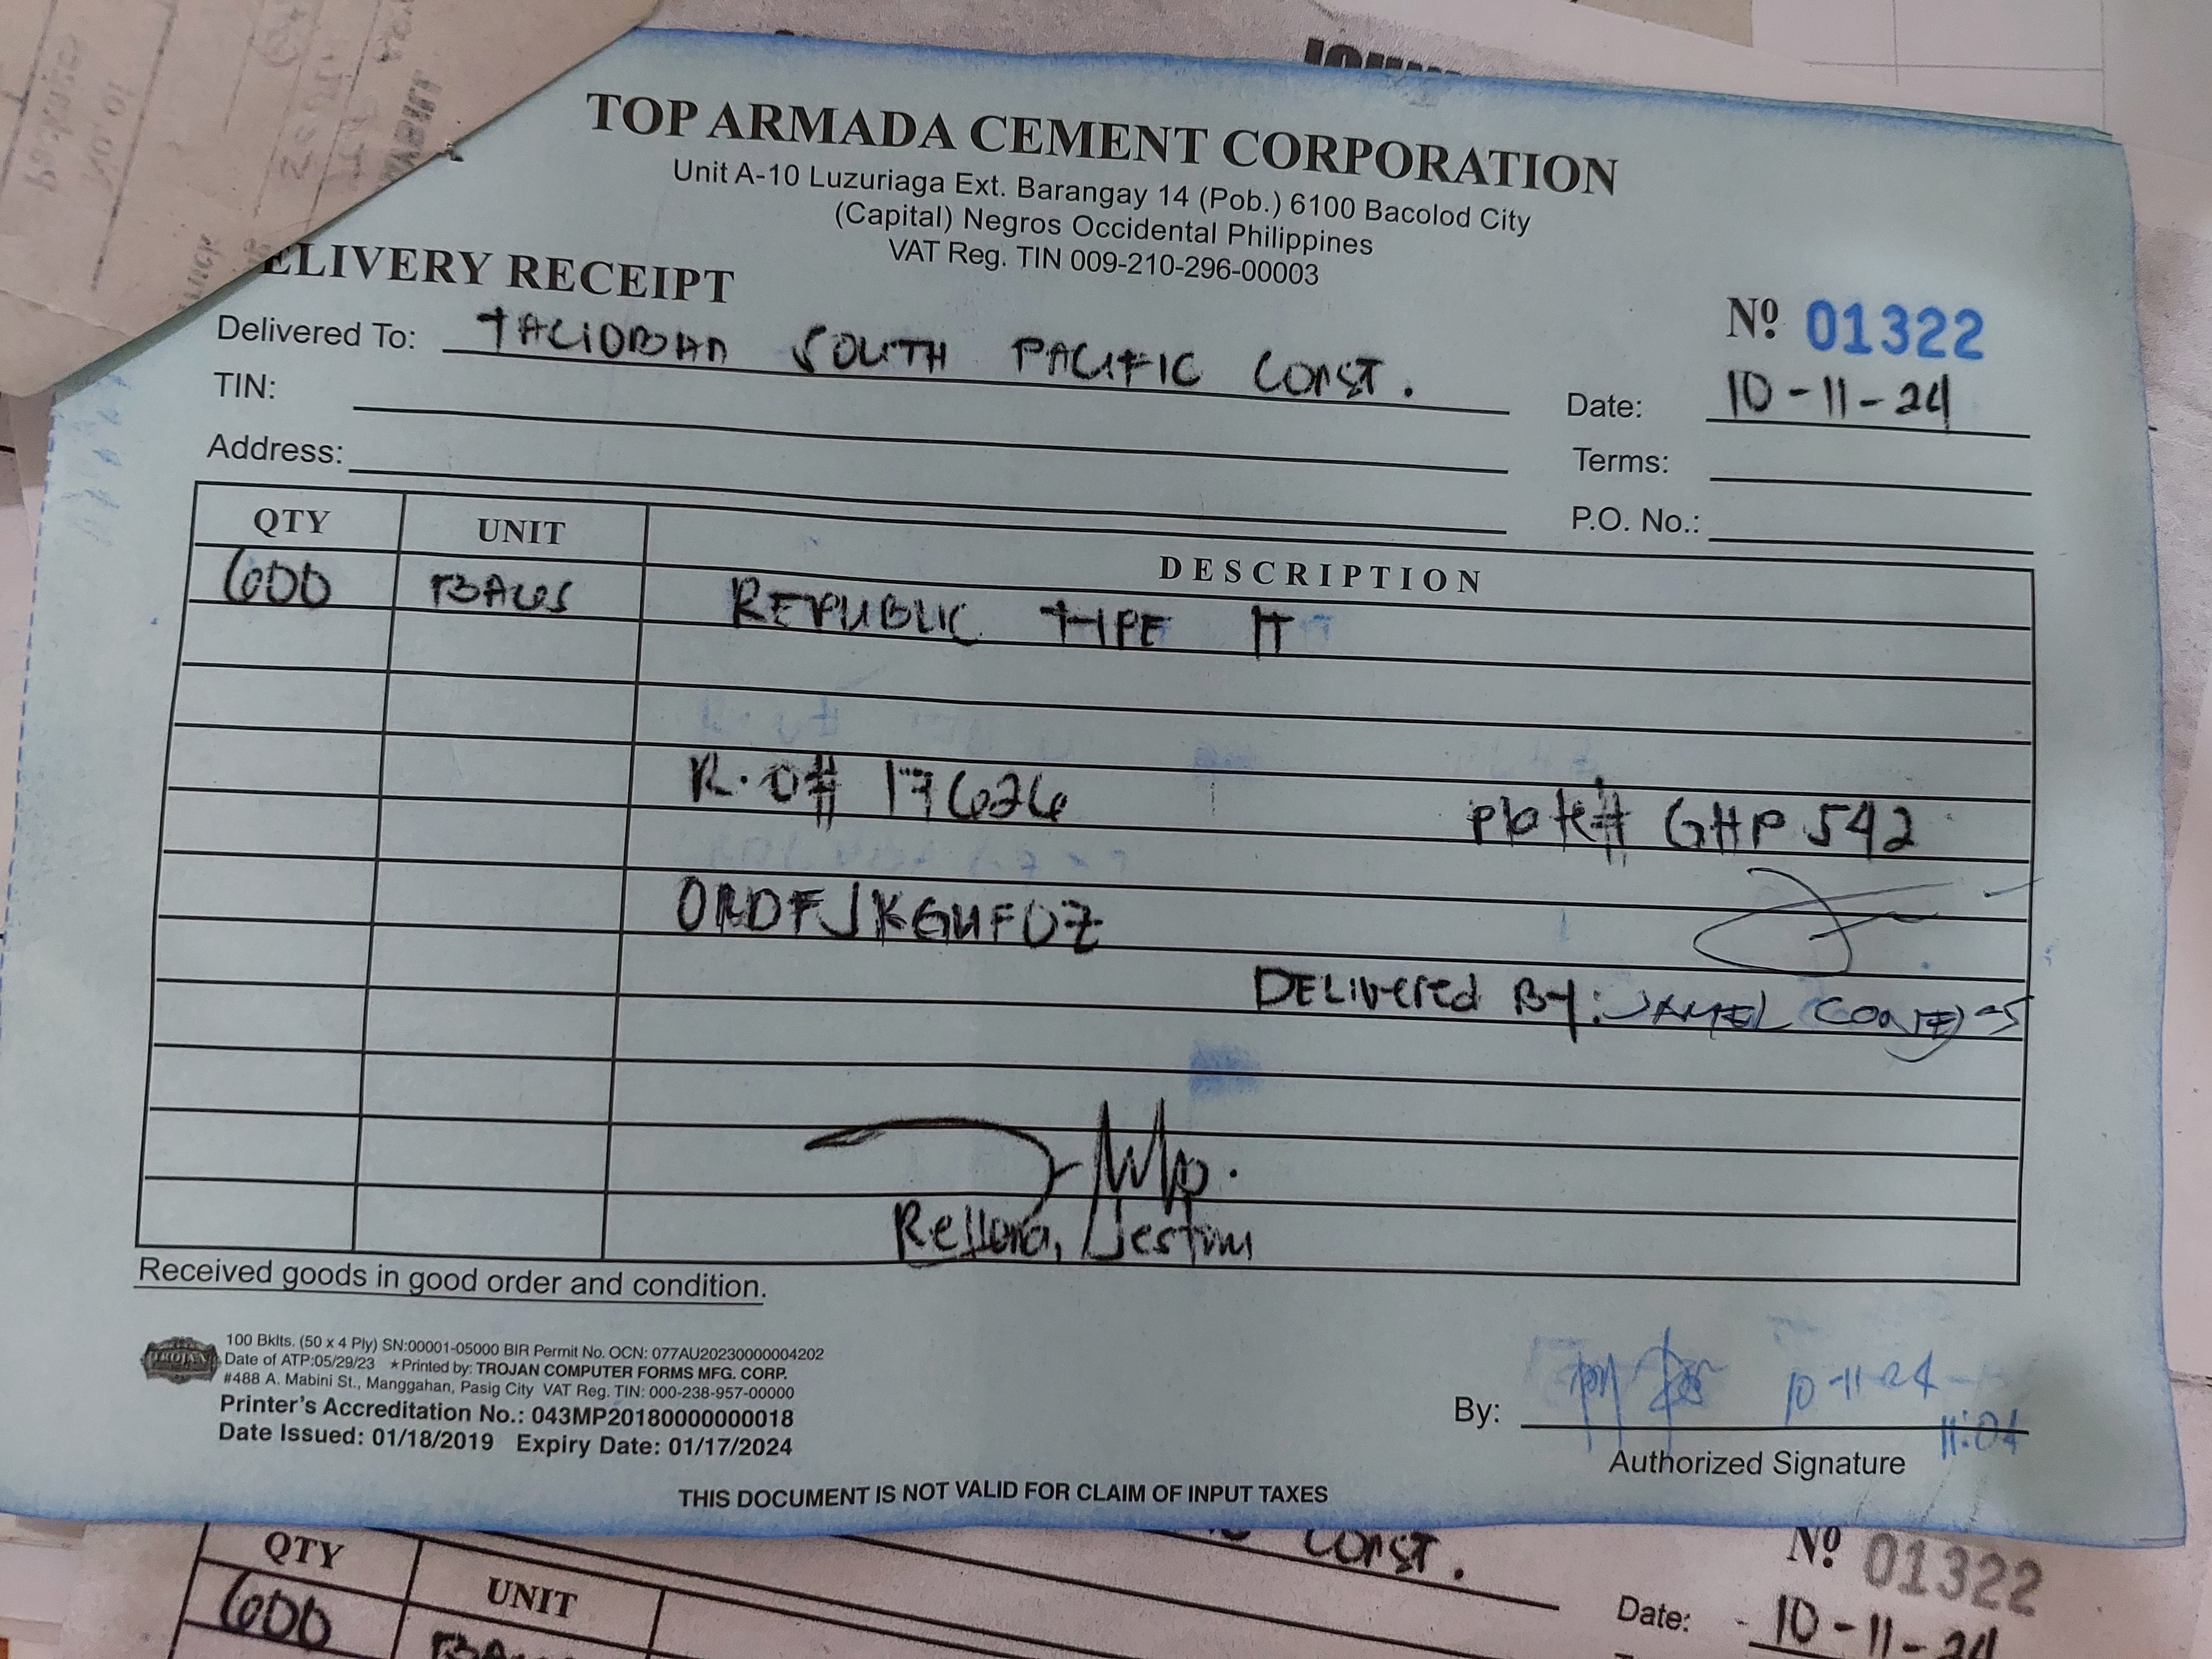 TOP ARMADA CEMENT CORPORATION
Unit A-10 Luzuriaga Ext. Barangay 14 (Pob.) 6100 Bacolod City
(Capital) Negros Occidental Philippines
VAT Reg. TIN 009-210-296-00003
ELIVERY RECEIPT
Nº 01322
Delivered To: TACLOBAN SOUTH PACIFIC CONST.
Date: 10-11-24
TIN:
Terms:
Address:
P.O. No.:
QTY UNIT DESCRIPTION
600 BAGS REPUBLIC TYPE
R.O# 17626 Plate# GHP 542
DELIVERED BY: JAMEL
Rellora,
Received goods in good order and condition.
TROJAN
100 Bklts. (50 x 4 Ply) SN:00001-05000 BIR Permit No. OCN: 077AU20230000004202
Date of ATP:05/29/23 ★Printed by: TROJAN COMPUTER FORMS MFG. CORP.
#488 A. Mabini St., Manggahan, Pasig City VAT Reg. TIN: 000-238-957-00000
Printer's Accreditation No.: 043MP20180000000018
Date Issued: 01/18/2019 Expiry Date: 01/17/2024
By: 10-11-24
11:01
Authorized Signature
THIS DOCUMENT IS NOT VALID FOR CLAIM OF INPUT TAXES
CONST.
Nº 01322
QTY UNIT
Date: 10-11-24
600